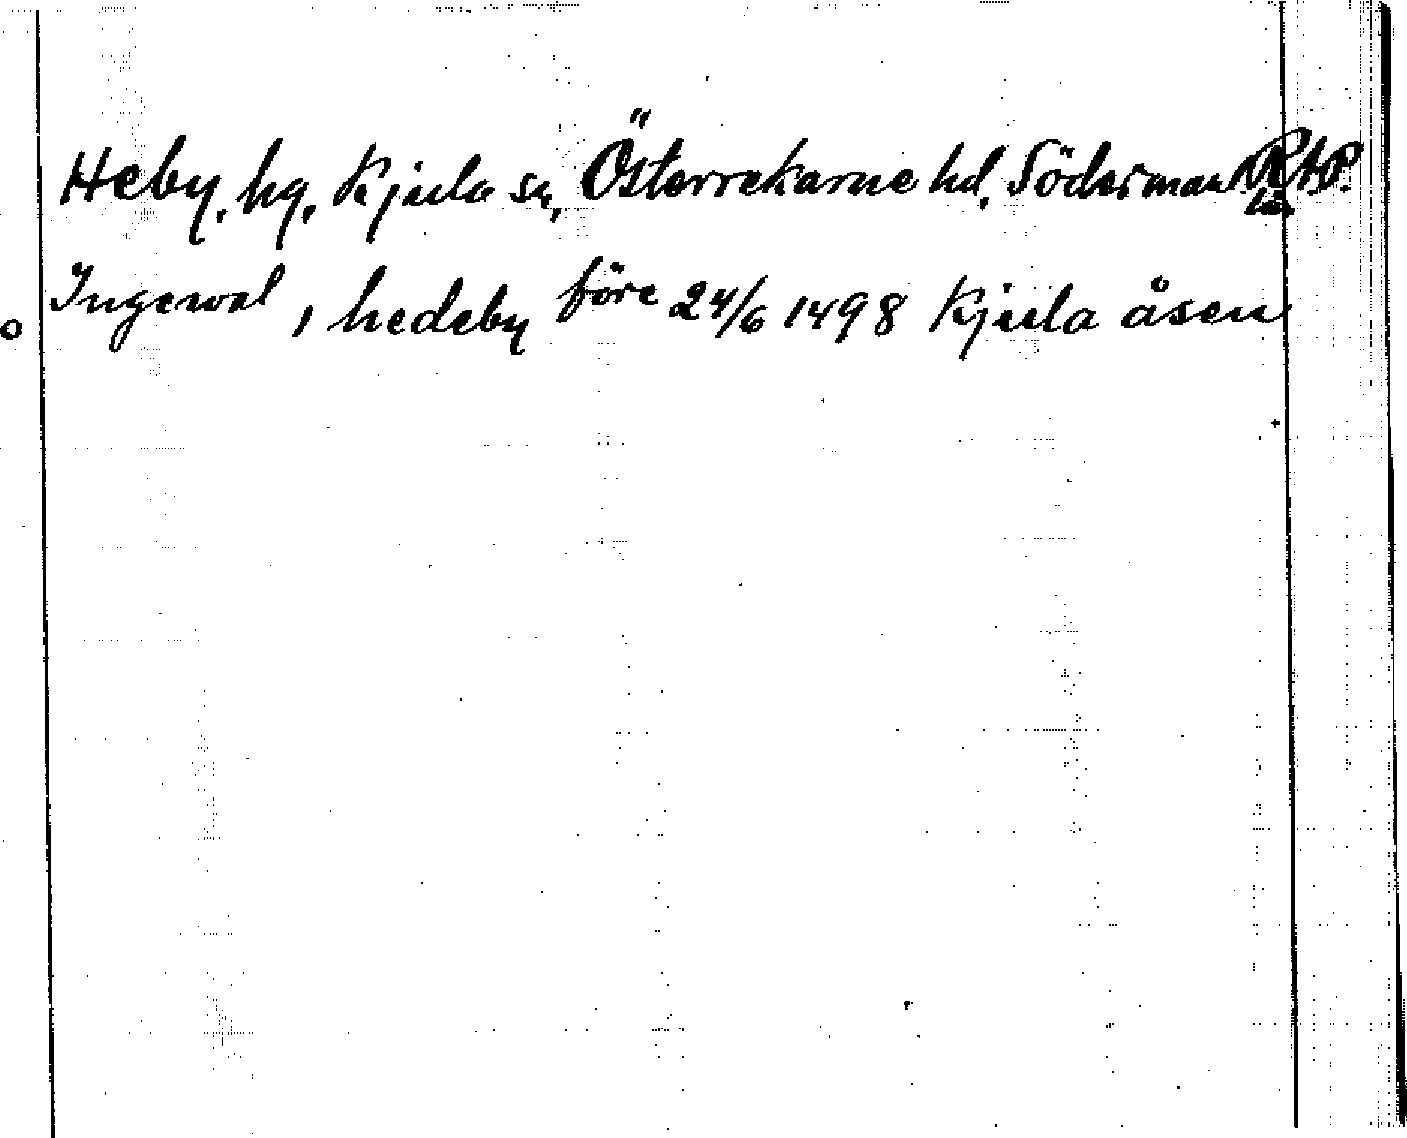 Heby, hg, Kjula sn, Österrekarne hd, Söderman RAP.
län
Ingewal, hedeby före 24/6 1498 Kjula åsen